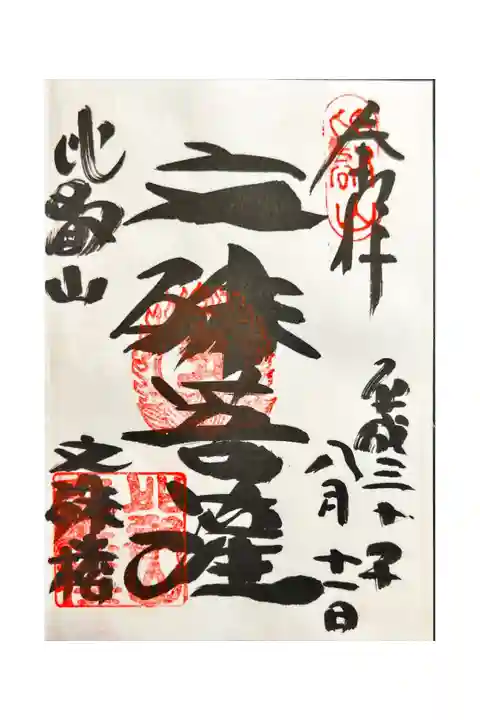 奉拝
平成三十年
八月十一日
文殊菩薩
比叡山
文殊楼